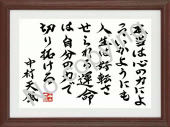 本当は心の力によ
っていかようにも
人生は好転さ
せられる 運命
は自分の力で
切り拓ける
中村天風